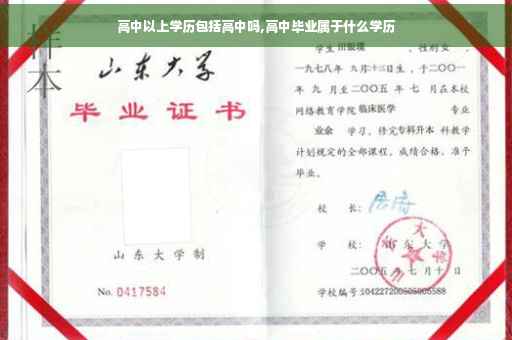 高中以上学历包括高中吗,高中毕业属于什么学历
样本
山东大学
毕业证书
山东大学制
No. 0417584
学生 田银璞 , 性别女 ,
一九七八年 九月十三日生 , 于二〇〇一
年 九 月至二〇〇五 年 七 月在本校
网络教育学院 临床医学 专业
业余 学习, 修完专科升本 科教学
计划规定的全部课程, 成绩合格, 准予
毕业。
校 长:
学 校: 山东大学
二〇〇五 年 七 月 十 日
学校编号:104227200505005588